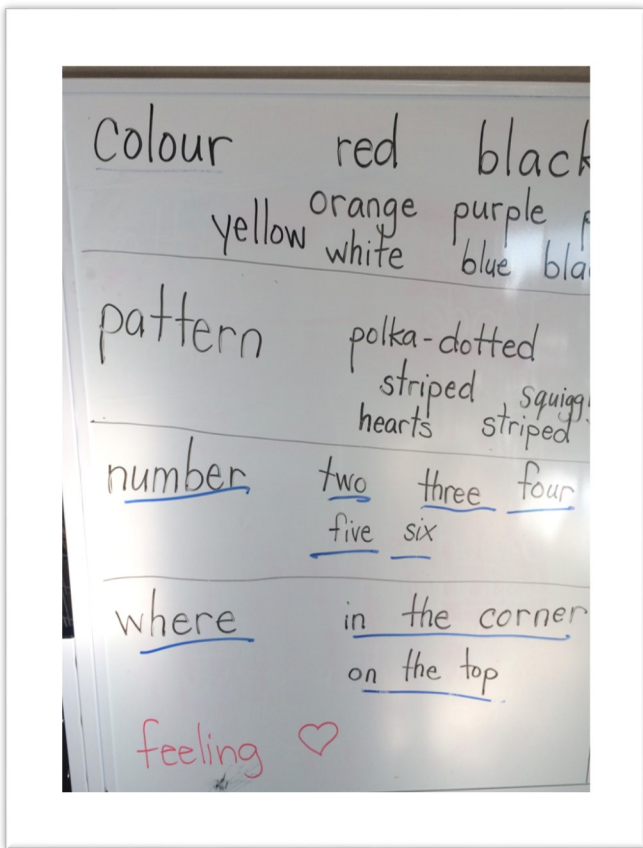 colour red black
orange purple
yellow white blue
pattern polka-dotted
striped
hearts striped
number two three four
five six
where in the corner
on the top
feeling